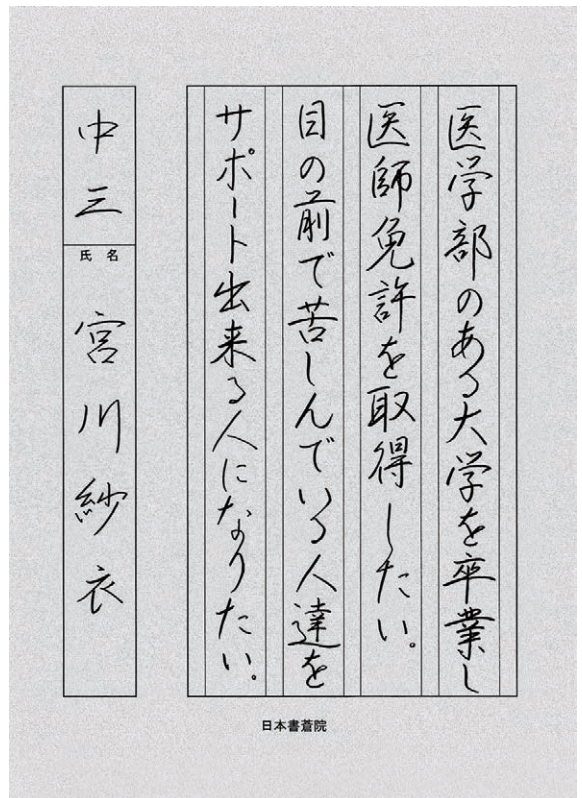 医学部のある大学を卒業し
医師免許を取得したい。
目の前で苦しんでいる人達を
サポート出来る人になりたい。
中三
氏名
宮川紗衣
日本書蒼院